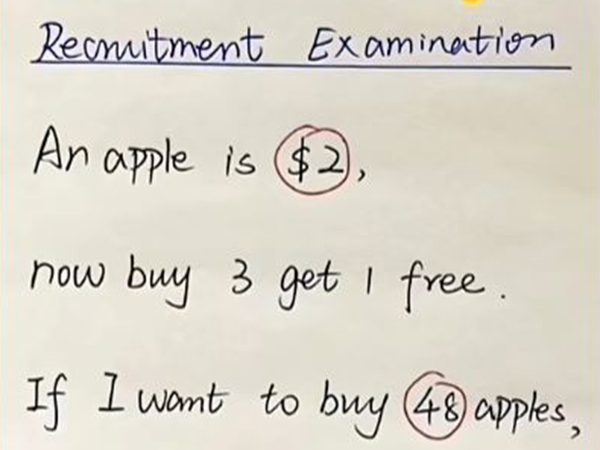 Recruitment Examination
An apple is $2,
now buy 3 get 1 free.
If I want to buy 48 apples,